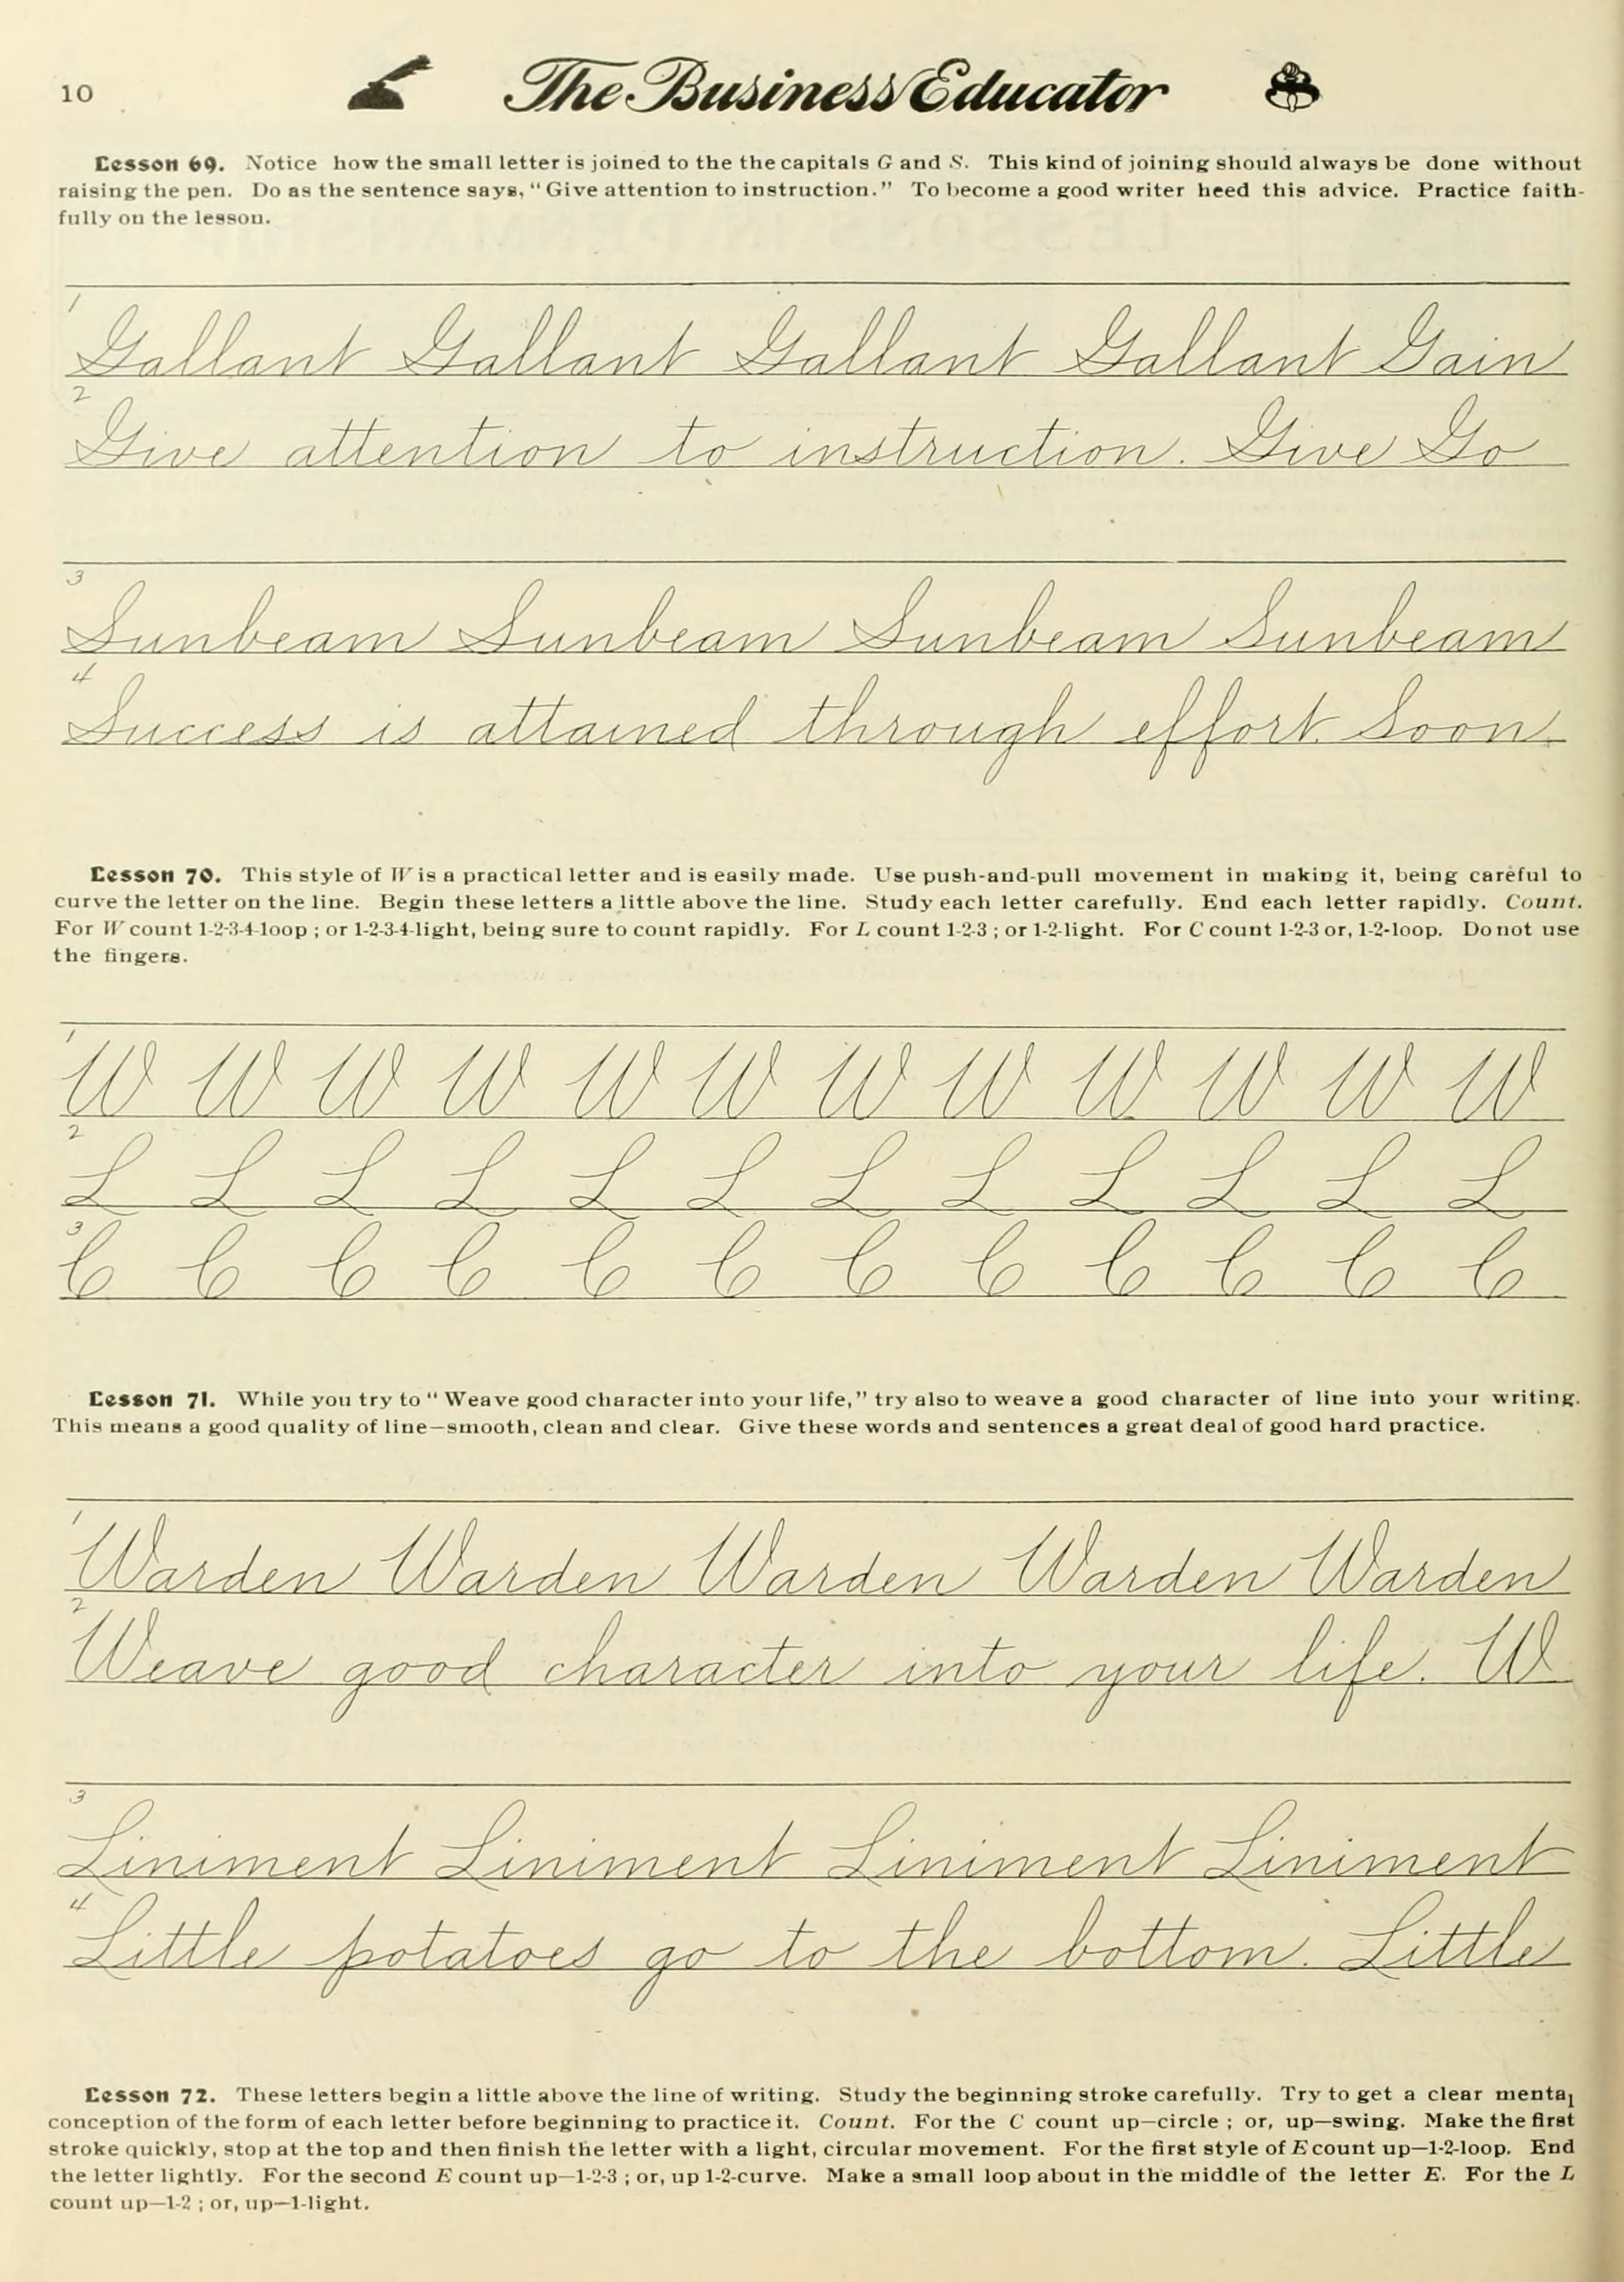 10
The Business Educator
Lesson 69. Notice how the small letter is joined to the the capitals G and S. This kind of joining should always be done without
raising the pen. Do as the sentence says, "Give attention to instruction." To become a good writer heed this advice. Practice faith-
fully on the lesson.
1
Gallant Gallant Gallant Gallant Gain
2
Give attention to instruction. Give Go
3
Sunbeam Sunbeam Sunbeam Sunbeam
4
Success is attained through effort. Soon
Lesson 70. This style of W is a practical letter and is easily made. Use push-and-pull movement in making it, being careful to
curve the letter on the line. Begin these letters a little above the line. Study each letter carefully. End each letter rapidly. Count.
For W count 1-2-3-4-loop; or 1-2-3-4-light, being sure to count rapidly. For L count 1-2-3; or 1-2-light. For C count 1-2-3 or, 1-2-loop. Do not use
the fingers.
1
W W W W W W W W W W W W
2
L L L L L L L L L L L L
3
C C C C C C C C C C C C
Lesson 71. While you try to "Weave good character into your life," try also to weave a good character of line into your writing.
This means a good quality of line—smooth, clean and clear. Give these words and sentences a great deal of good hard practice.
1
Warden Warden Warden Warden Warden
2
Weave good character into your life. W
3
Liniment Liniment Liniment Liniment
4
Little potatoes go to the bottom. Little
Lesson 72. These letters begin a little above the line of writing. Study the beginning stroke carefully. Try to get a clear mental
conception of the form of each letter before beginning to practice it. Count. For the C count up—circle; or, up—swing. Make the first
stroke quickly, stop at the top and then finish the letter with a light, circular movement. For the first style of E count up—1-2-loop. End
the letter lightly. For the second E count up—1-2-3; or, up 1-2-curve. Make a small loop about in the middle of the letter E. For the L
count up—1-2; or, up—1-light.